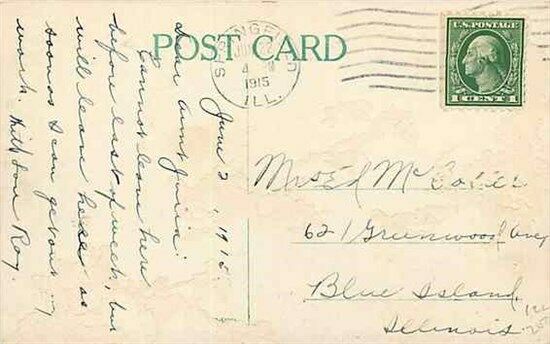 POST CARD
SPRINGFIELD
JUN 2
1915
ILL.
U.S. POSTAGE
1 CENT 1
June 2, 1915.
Dear Aunt
Cannot leave here
before last of week, but
will leave here as
soon as I can get out of
work. With Love Roy.
Mrs Ed
621 Greenwood Ave,
Blue Island,
Illinois